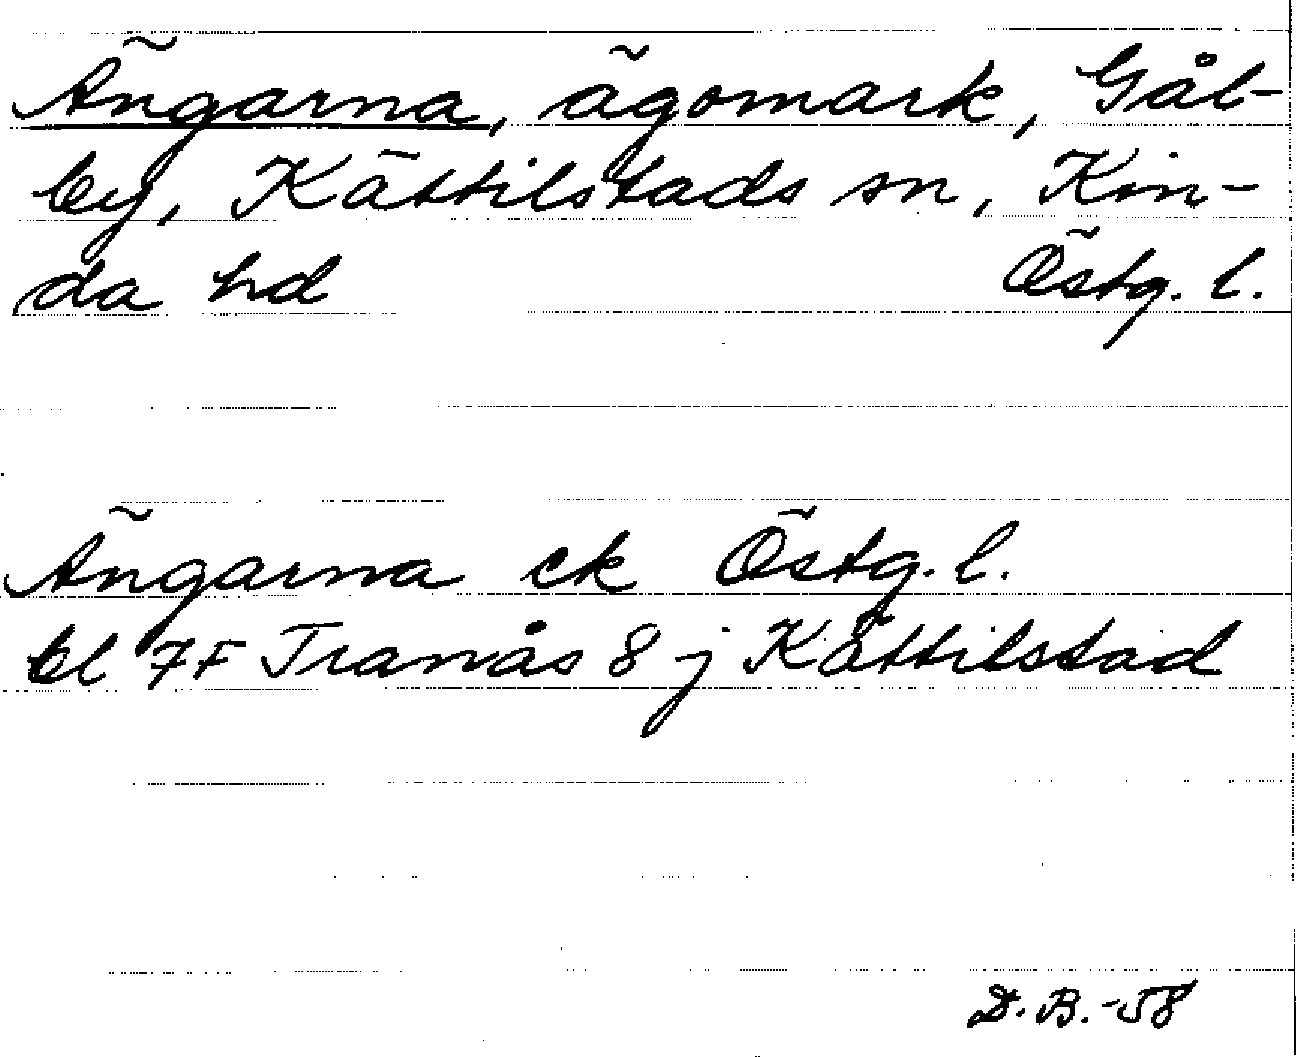 Ängarna, ägomark, Gål-
by, Kättilstads sn, Kin-
da hd Östg. l.
Ängarna ek Östg. l.
bl 7F Tranås 8 j Kättilstad
D.B.-58